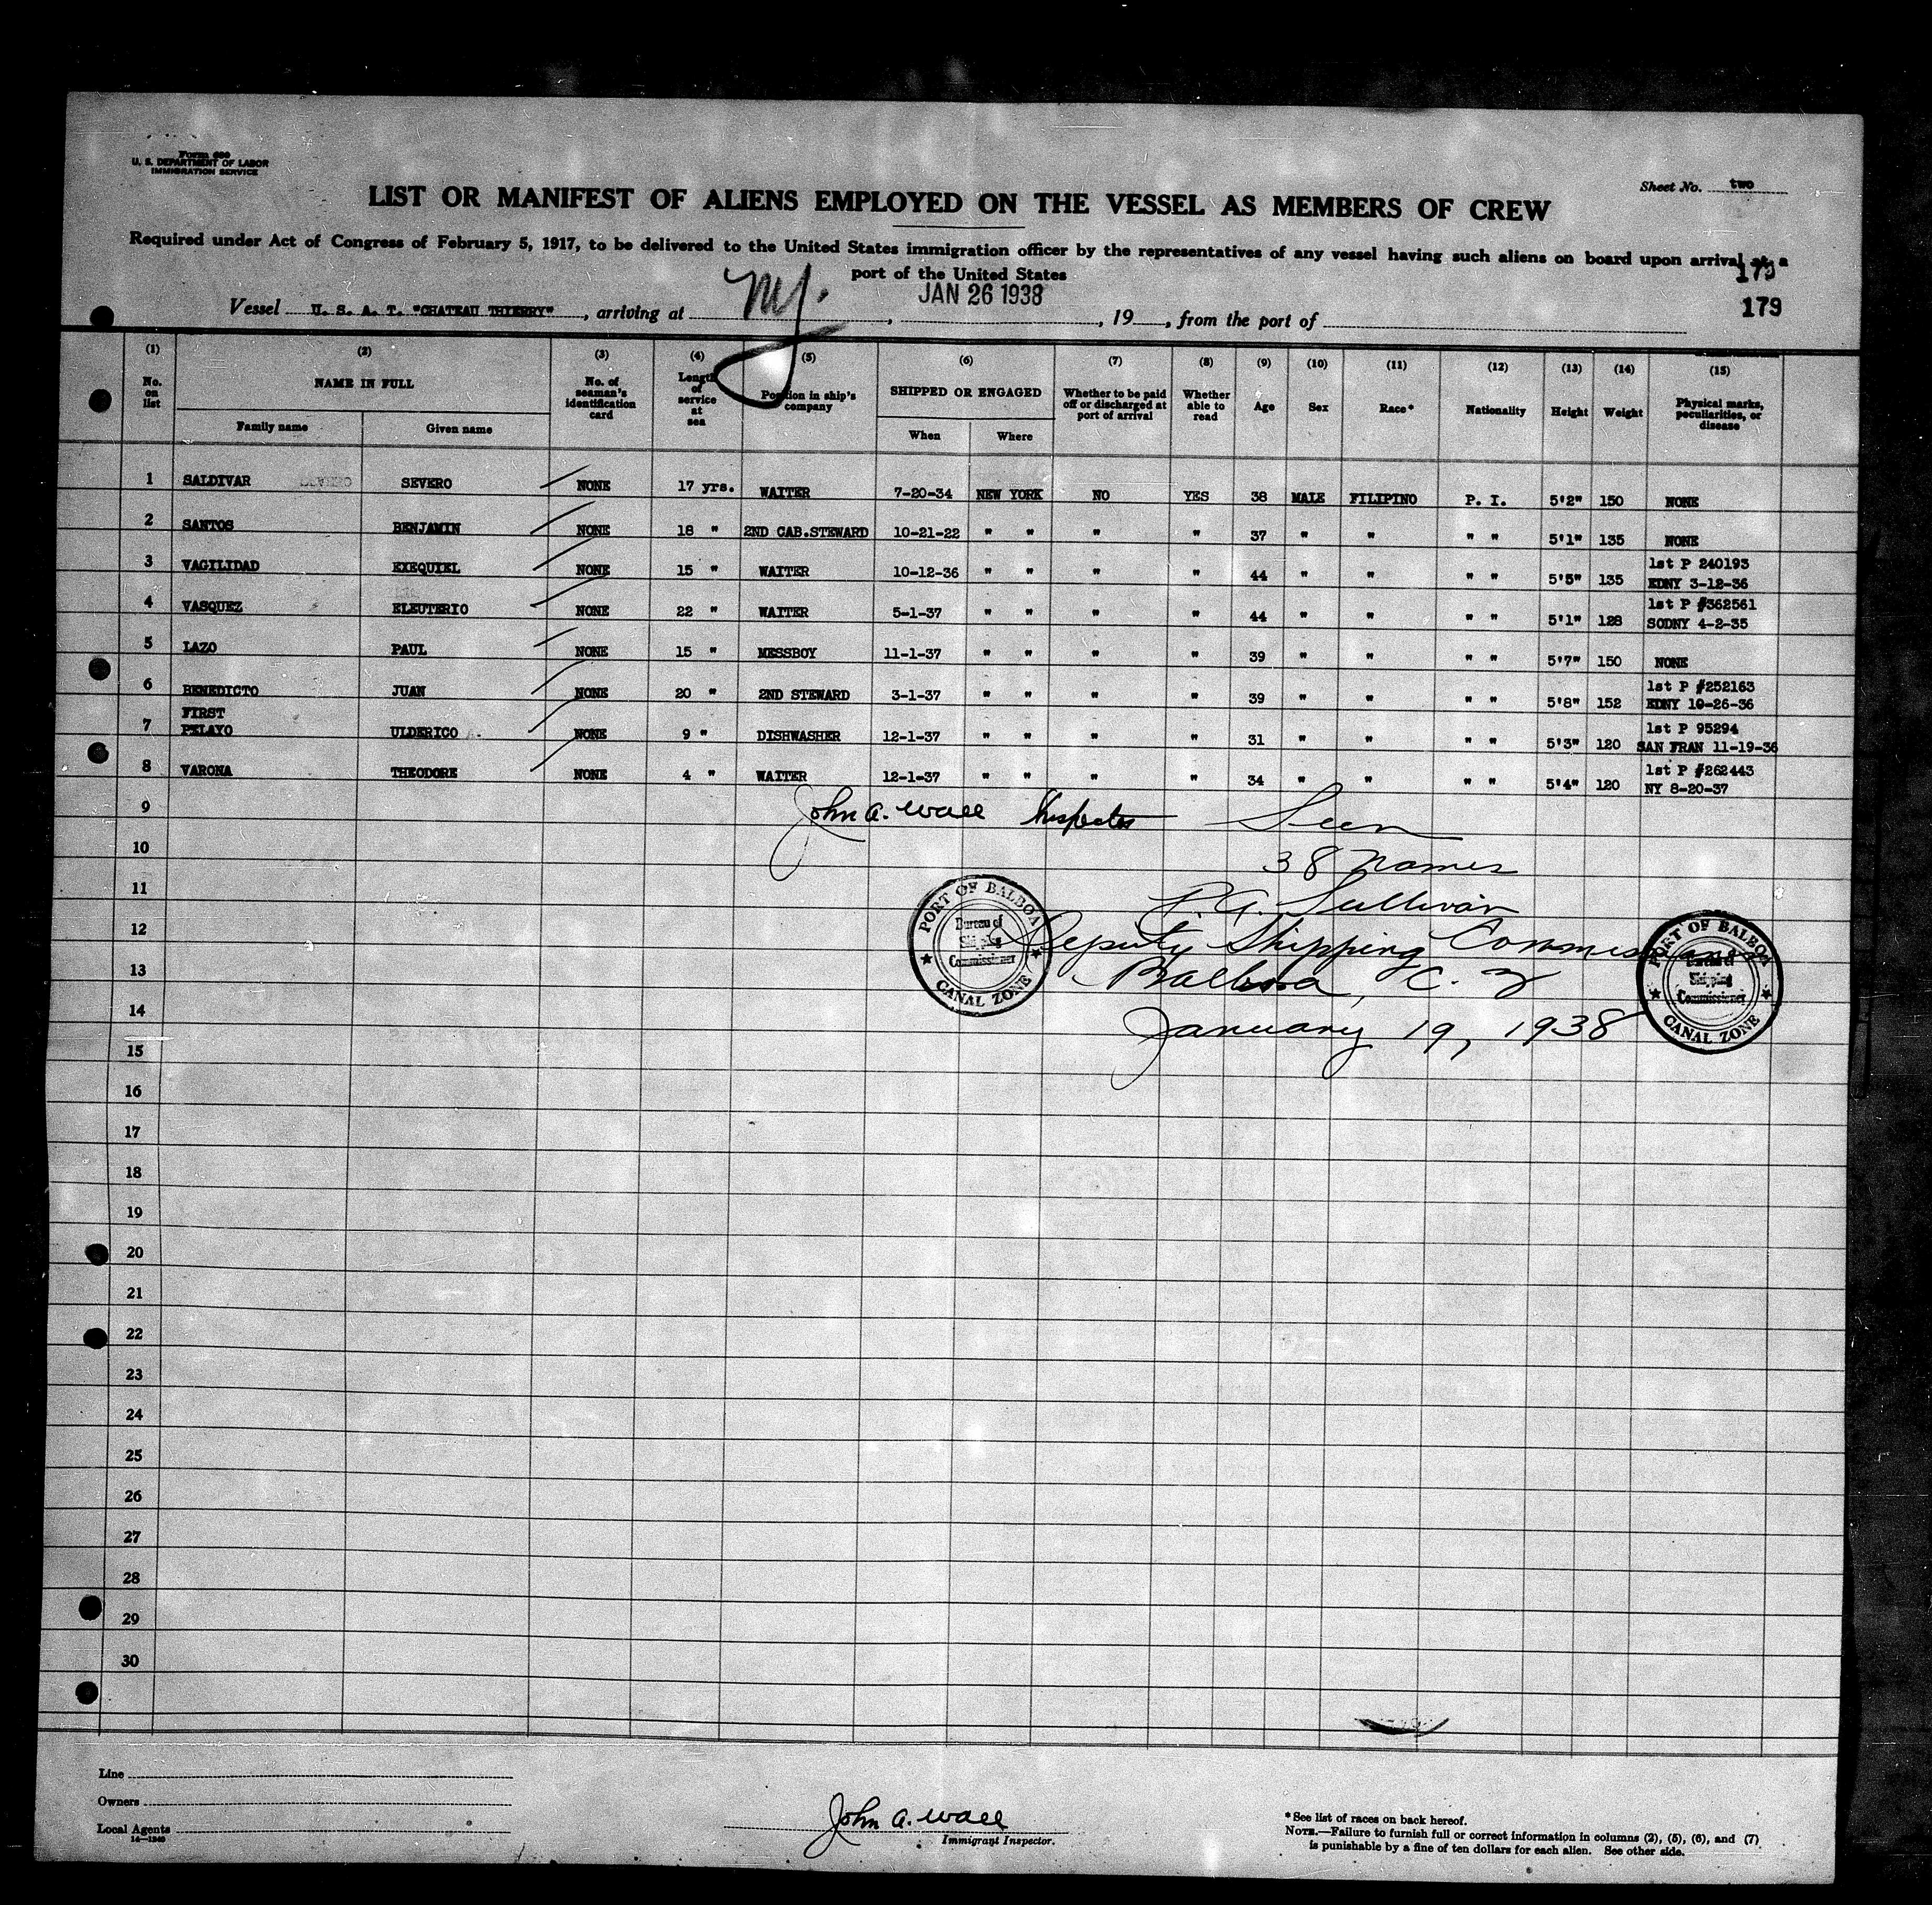 Form 680
U. S. DEPARTMENT OF LABOR
IMMIGRATION SERVICE
Sheet No. two
LIST OR MANIFEST OF ALIENS EMPLOYED ON THE VESSEL AS MEMBERS OF CREW
Required under Act of Congress of February 5, 1917, to be delivered to the United States immigration officer by the representatives of any vessel having such aliens on board upon arrival at a
port of the United States
179
Vessel U. S. A. T. "CHATEAU THIERRY", arriving at NY. JAN 26 1938, 19, from the port of
179
(1) (2) (3) (4) (5) (6) (7) (8) (9) (10) (11) (12) (13) (14) (15)
No. on list NAME IN FULL No. of seaman's identification card Length of service at sea Position in ship's company SHIPPED OR ENGAGED Whether to be paid off or discharged at port of arrival Whether able to read Age Sex Race* Nationality Height Weight Physical marks, peculiarities, or disease
Family name Given name When Where
1 SALDIVAR SEVERO NONE 17 yrs. WAITER 7-20-34 NEW YORK NO YES 38 MALE FILIPINO P. I. 5'2" 150 NONE
2 SANTOS BENJAMIN NONE 18 " 2ND CAB.STEWARD 10-21-22 " " " " 37 " " " " 5'1" 135 NONE
3 VAGILIDAD EXEQUIEL NONE 15 " WAITER 10-12-36 " " " " 44 " " " " 5'5" 135 1st P 240193
EDNY 3-12-36
4 VASQUEZ ELEUTERIO NONE 22 " WAITER 5-1-37 " " " " 44 " " " " 5'1" 128 1st P #362561
SODNY 4-2-35
5 LAZO PAUL NONE 15 " MESSBOY 11-1-37 " " " " 39 " " " " 5'7" 150 NONE
6 BENEDICTO JUAN NONE 20 " 2ND STEWARD 3-1-37 " " " " 39 " " " " 5'8" 152 1st P #252163
EDNY 10-26-36
FIRST
7 PELAYO ULDERICO NONE 9 " DISHWASHER 12-1-37 " " " " 31 " " " " 5'3" 120 1st P 95294
SAN FRAN 11-19-36
8 VARONA THEODORE NONE 4 " WAITER 12-1-37 " " " " 34 " " " " 5'4" 120 1st P #262443
NY 8-20-37
9 John A. Wall Inspector Seen
10 38 names
11 Sullivan
12 Deputy Shipping Commissioner
13 Balboa, C. Z
14 January 19, 1938
PORT OF BALBOA
Bureau of
Shipping
Commissioner
CANAL ZONE
PORT OF BALBOA
Shipping
Commissioner
CANAL ZONE
15
16
17
18
19
20
21
22
23
24
25
26
27
28
29
30
Line
Owners
Local Agents
14—1240
John A. Wall
Immigrant Inspector.
*See list of races on back hereof.
NOTE.—Failure to furnish full or correct information in columns (2), (5), (6), and (7)
is punishable by a fine of ten dollars for each alien. See other side.